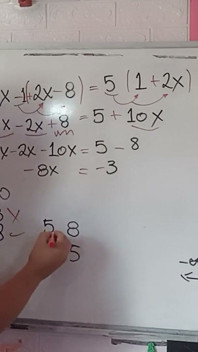 x-1(+2x-8) = 5 (1+2x)
x-2x+8 = 5 + 10x
x-2x-10x = 5 - 8
-8x = -3
0
x
5 8
5